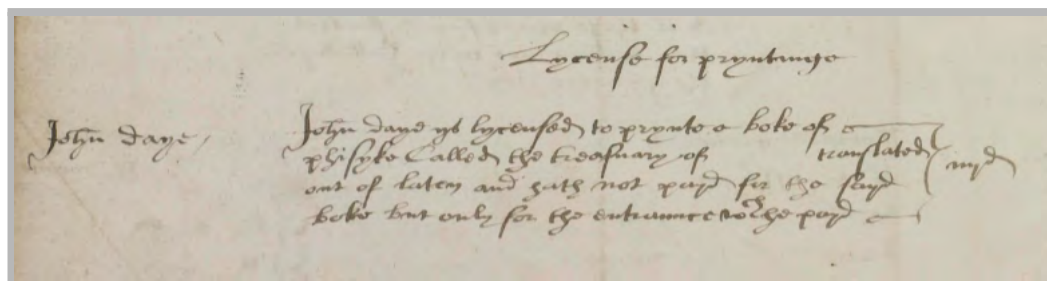 Lycense for pryntinge
John daye
John daye ys lycensed to prynte a boke of
phisyke Called the treasuary of translated
out of laten and hath not payd for the sayd
boke but only for the entraunce wch he payd
iiijd